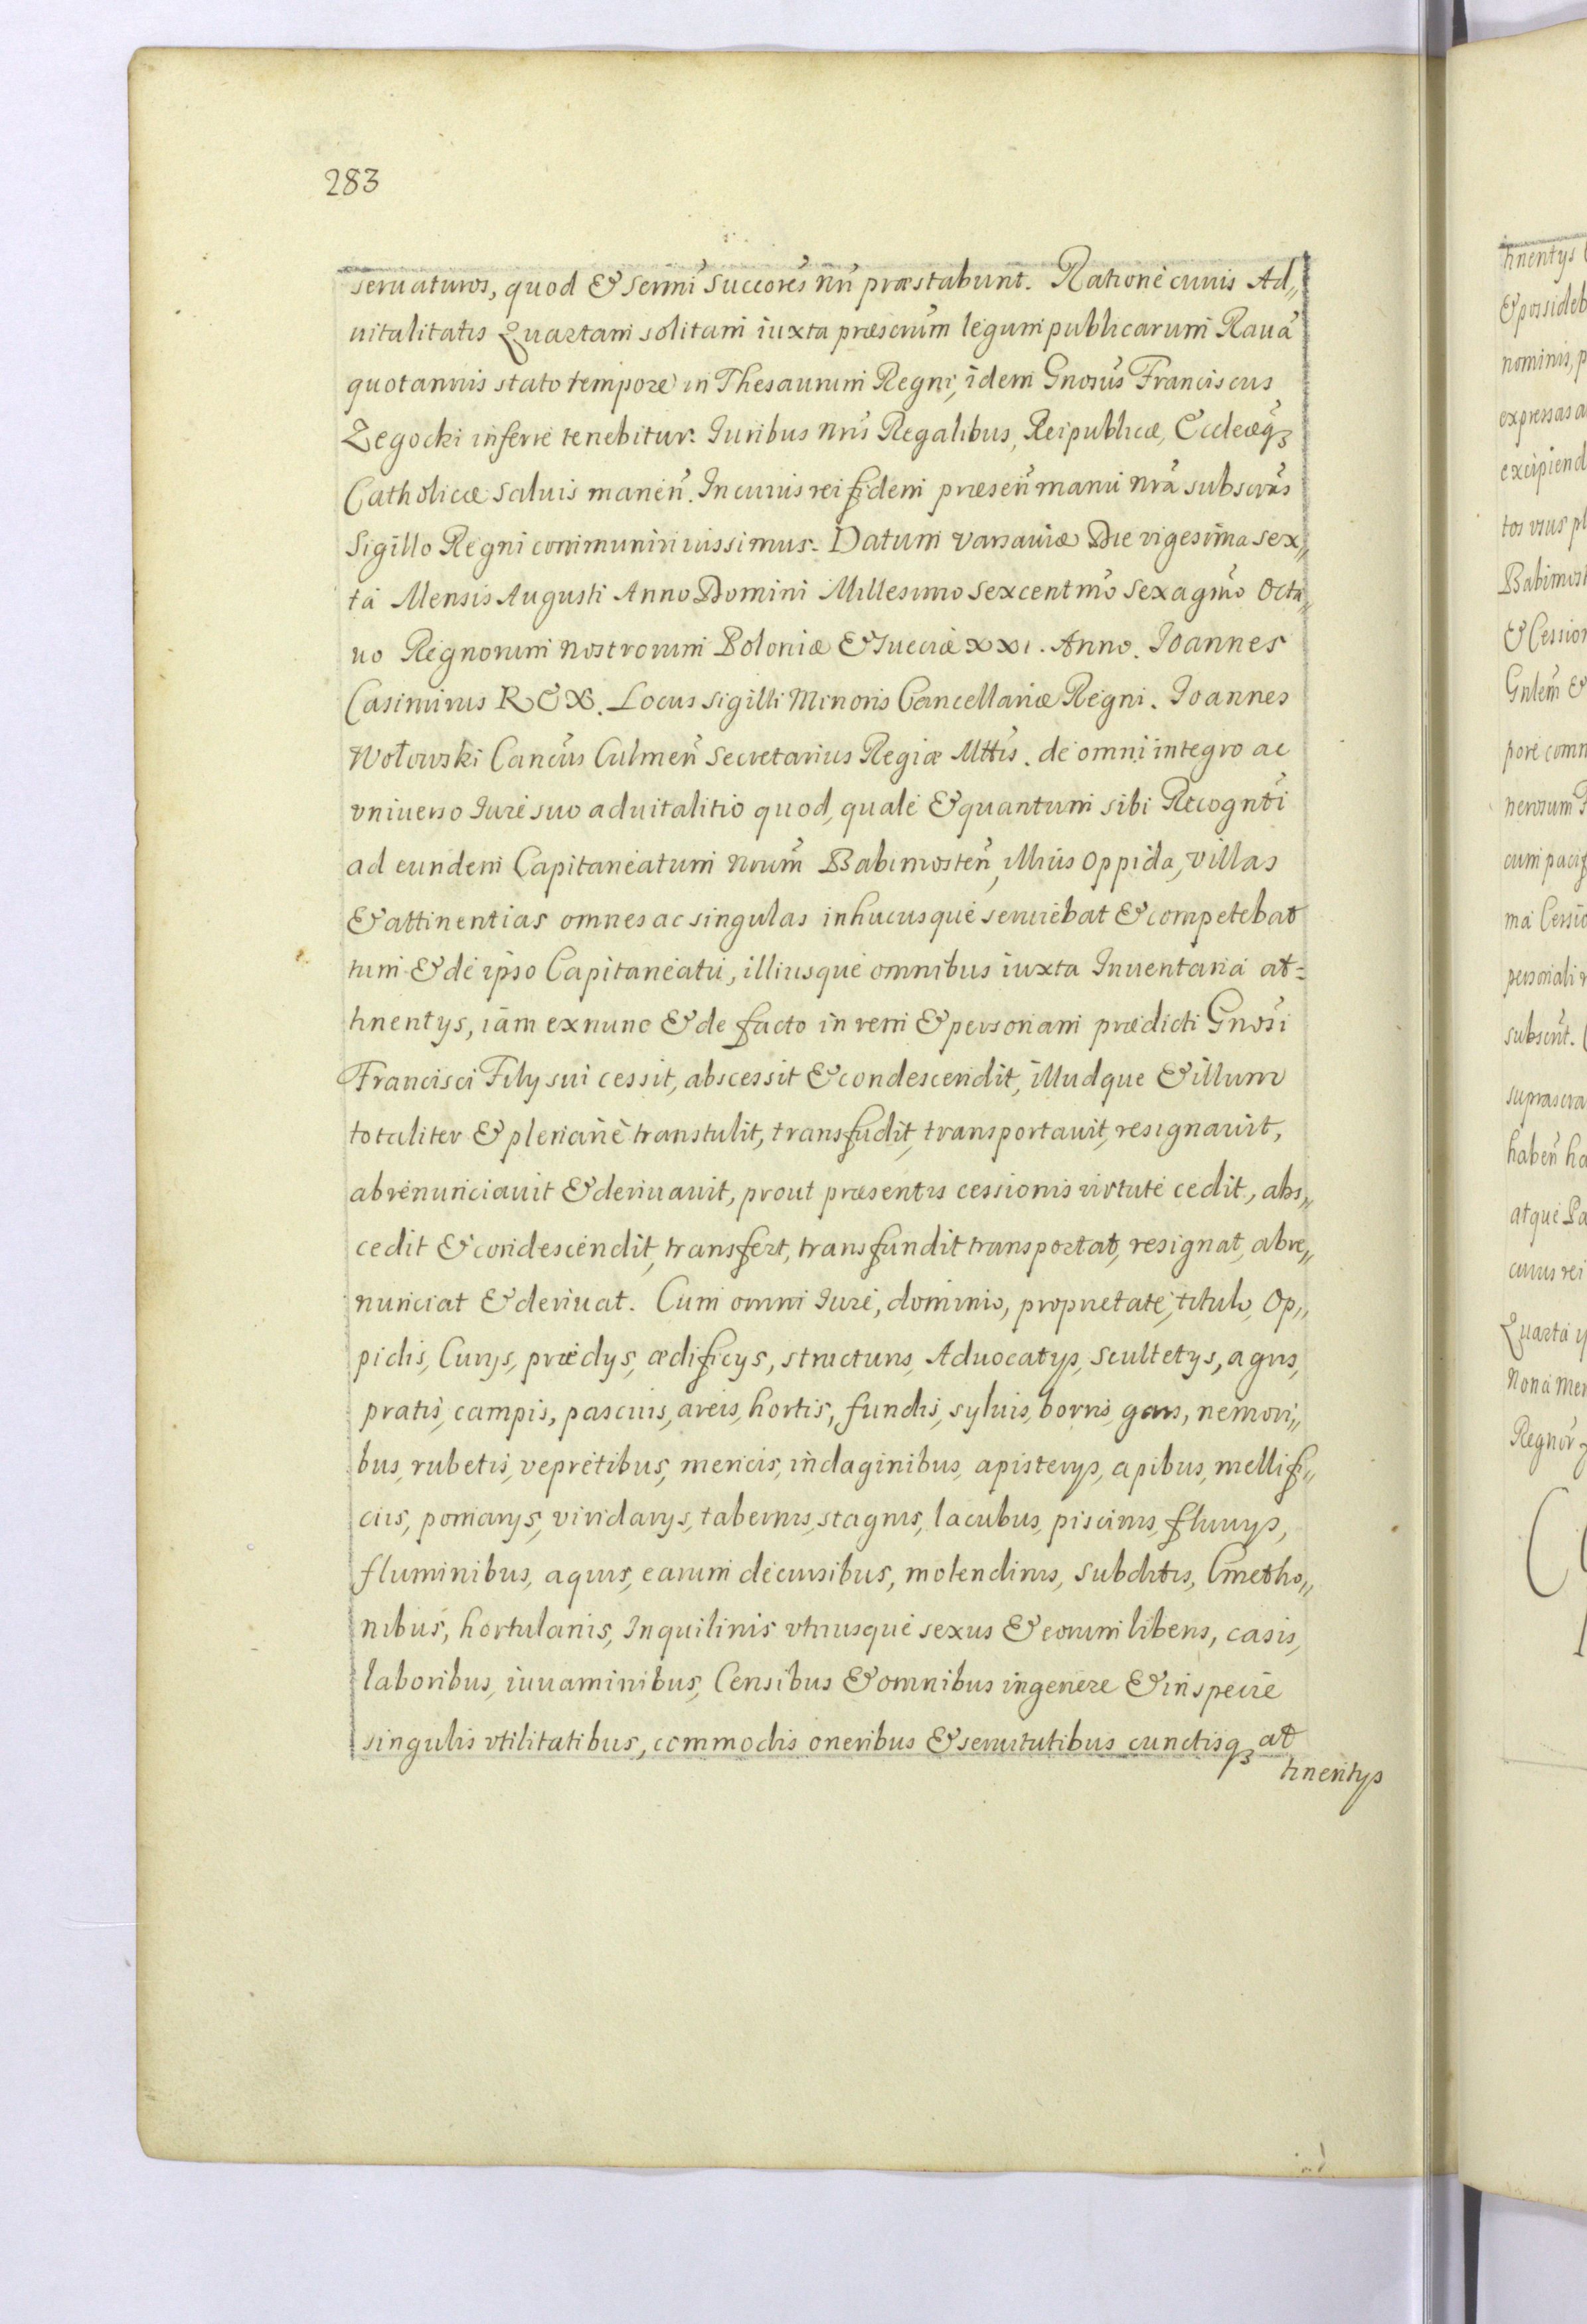 283
seruaturos, quod & Sermi Succores nri præstabunt. Ratione cuius Ad„
uitalitatis Quartam solitam iuxta præscrum legum publicarum Rauã
quotannis stato tempore in Thesaurum Regni, idem Gnosus Franciscus
Zegocki inferre tenebitur. Iuribus nris Regalibus, Reipublicæ, Eccleæq3
Catholicæ Saluis maneñ. In cuius rei fidem præseñ manu nrã subscrãs
Sigillo Regni communiri iussimus. Datum Varsauiæ Die vigesima sex„
ta Mensis Augusti Anno Domini Millesimo Sexcentmo Sexagmo Octa„
uo Regnorum nostrorum Poloniæ & Sueciæ XXI. Anno. Ioannes
Casimirus REX. Locus Sigilli Minoris Cancellariæ Regni. Ioannes
Wołowski Cancus Culmeñ Secretarius Regiæ Mttis. de omni integro ac
vniuerso Iure suo aduitalitio quod, quale & quantum sibi Recognti
ad eundem Capitaneatum nrum Babimosteñ, illius Oppida, villas
& attinentias omnes ac singulas inhucusque seruiebat & competebat
tum & de ipso Capitaneatu, illiusque omnibus iuxta Inuentaria at=
tinentys, iam ex nunc & de facto in rem & personam prædicti Gnosi
Francisci Filij sui cessit, abscessit & condescendit, illudque & illum
totaliter & plenarie transtulit, transfudit, transportauit, resignauit,
abrenunciauit & deriuauit, prout præsentis cessionis virtute cedit, abs„
cedit & condescendit, transfert, transfundit transportat, resignat, abre„
nunciat & deriuat. Cum omni Iure, dominio, proprietate, titulo, Op„
pidis, Curijs, prædys, ædificys, structuris, Aduocatys, Scultetys, agris,
pratis, campis, pascuis, areis, hortis, fundis, syluis, borris, gais, nemori„
bus, rubetis, vepretibus, mericis, indaginibus, apisterys, apibus, mellifi„
ciis, pomarys, viridarys, tabernis, stagnis, lacubus, piscinis, fluuys,
fluminibus, aquis, earum decursibus, molendinis, subditis, Cmetho„
nibus, hortulanis, Inquilinis vtriusque sexus & eorum liberis, casis,
laboribus, iuuaminibus, Censibus & omnibus in genere & in specie
singulis vtilitatibus, commodis oneribus & seruitutibus cunctisq3 at
tinentys